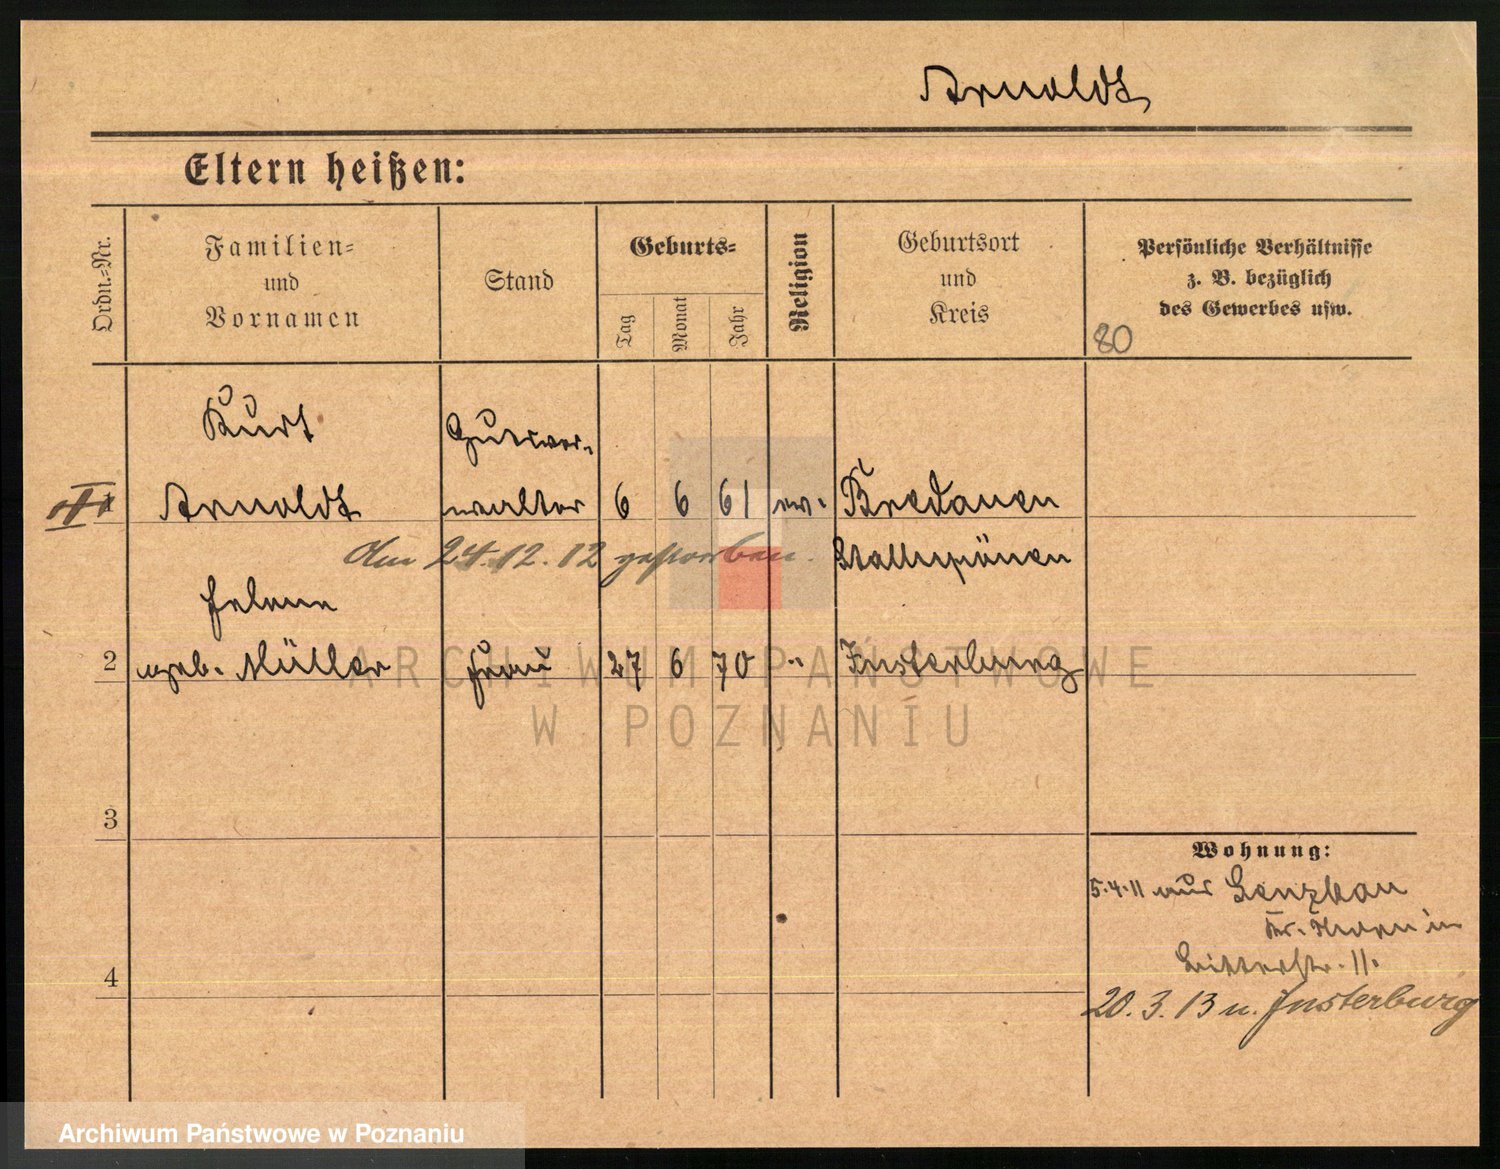 Arnoldt
Eltern heißen:
Ordn.-Nr.
Familien-
und
Vornamen
Stand
Geburts-
Tag
Monat
Jahr
Religion
Geburtsort
und
Kreis
Persönliche Verhältnisse
z. B. bezüglich
des Gewerbes usw.
80
Kurt
Arnoldt
Gutsver-
walter
6 6 61 ev.
Bredauen
Stallupönen
am 24.12.12 gestorben.
Helene
2 geb. Müller
Frau
27 6 70 "
Insterburg
3
4
Wohnung:
5.4.11 aus
Kr. Thorn in
Ritterstr. 11.
20.3.13 n. Insterburg
ARCHIWUM PAŃSTWOWE
W POZNANIU
Archiwum Państwowe w Poznaniu